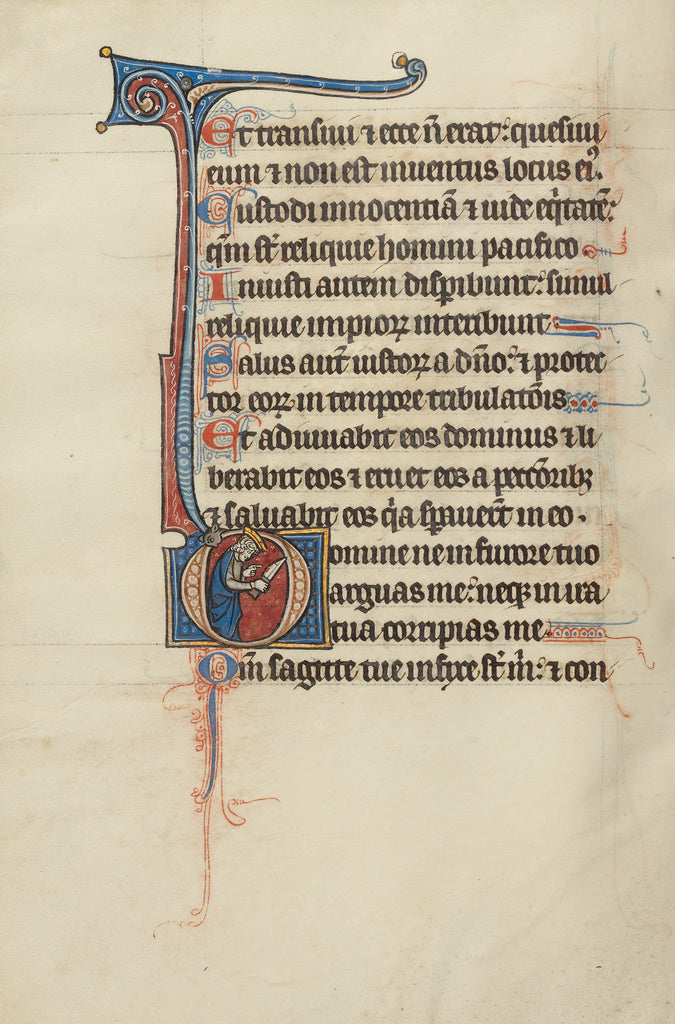 Et transiui ⁊ ecce ñ erat: quesiui
eum ⁊ non est inuentus locus ei᷒.
Custodi innocentiã ⁊ uide eq̃itatẽ:
qm̃ st̃ reliquie homini pacifico
Iniusti autem disꝑibunt: simul
reliquie impioꝝ interibunt
Salus aut̃ iustoꝝ a dño: ⁊ protec
tor eoꝝ in tempore tribulatõis
Et adiuuabit eos dominus ⁊ li
berabit eos ⁊ eruet eos a peccõribꝫ
⁊ saluabit eos q̃a sꝑauer̃t in eo.
Domine ne in furore tuo
arguas me: neqꝫ in ira
tua corripias me
Qm̃ sagitte tue infixe st̃ m̃: ⁊ con